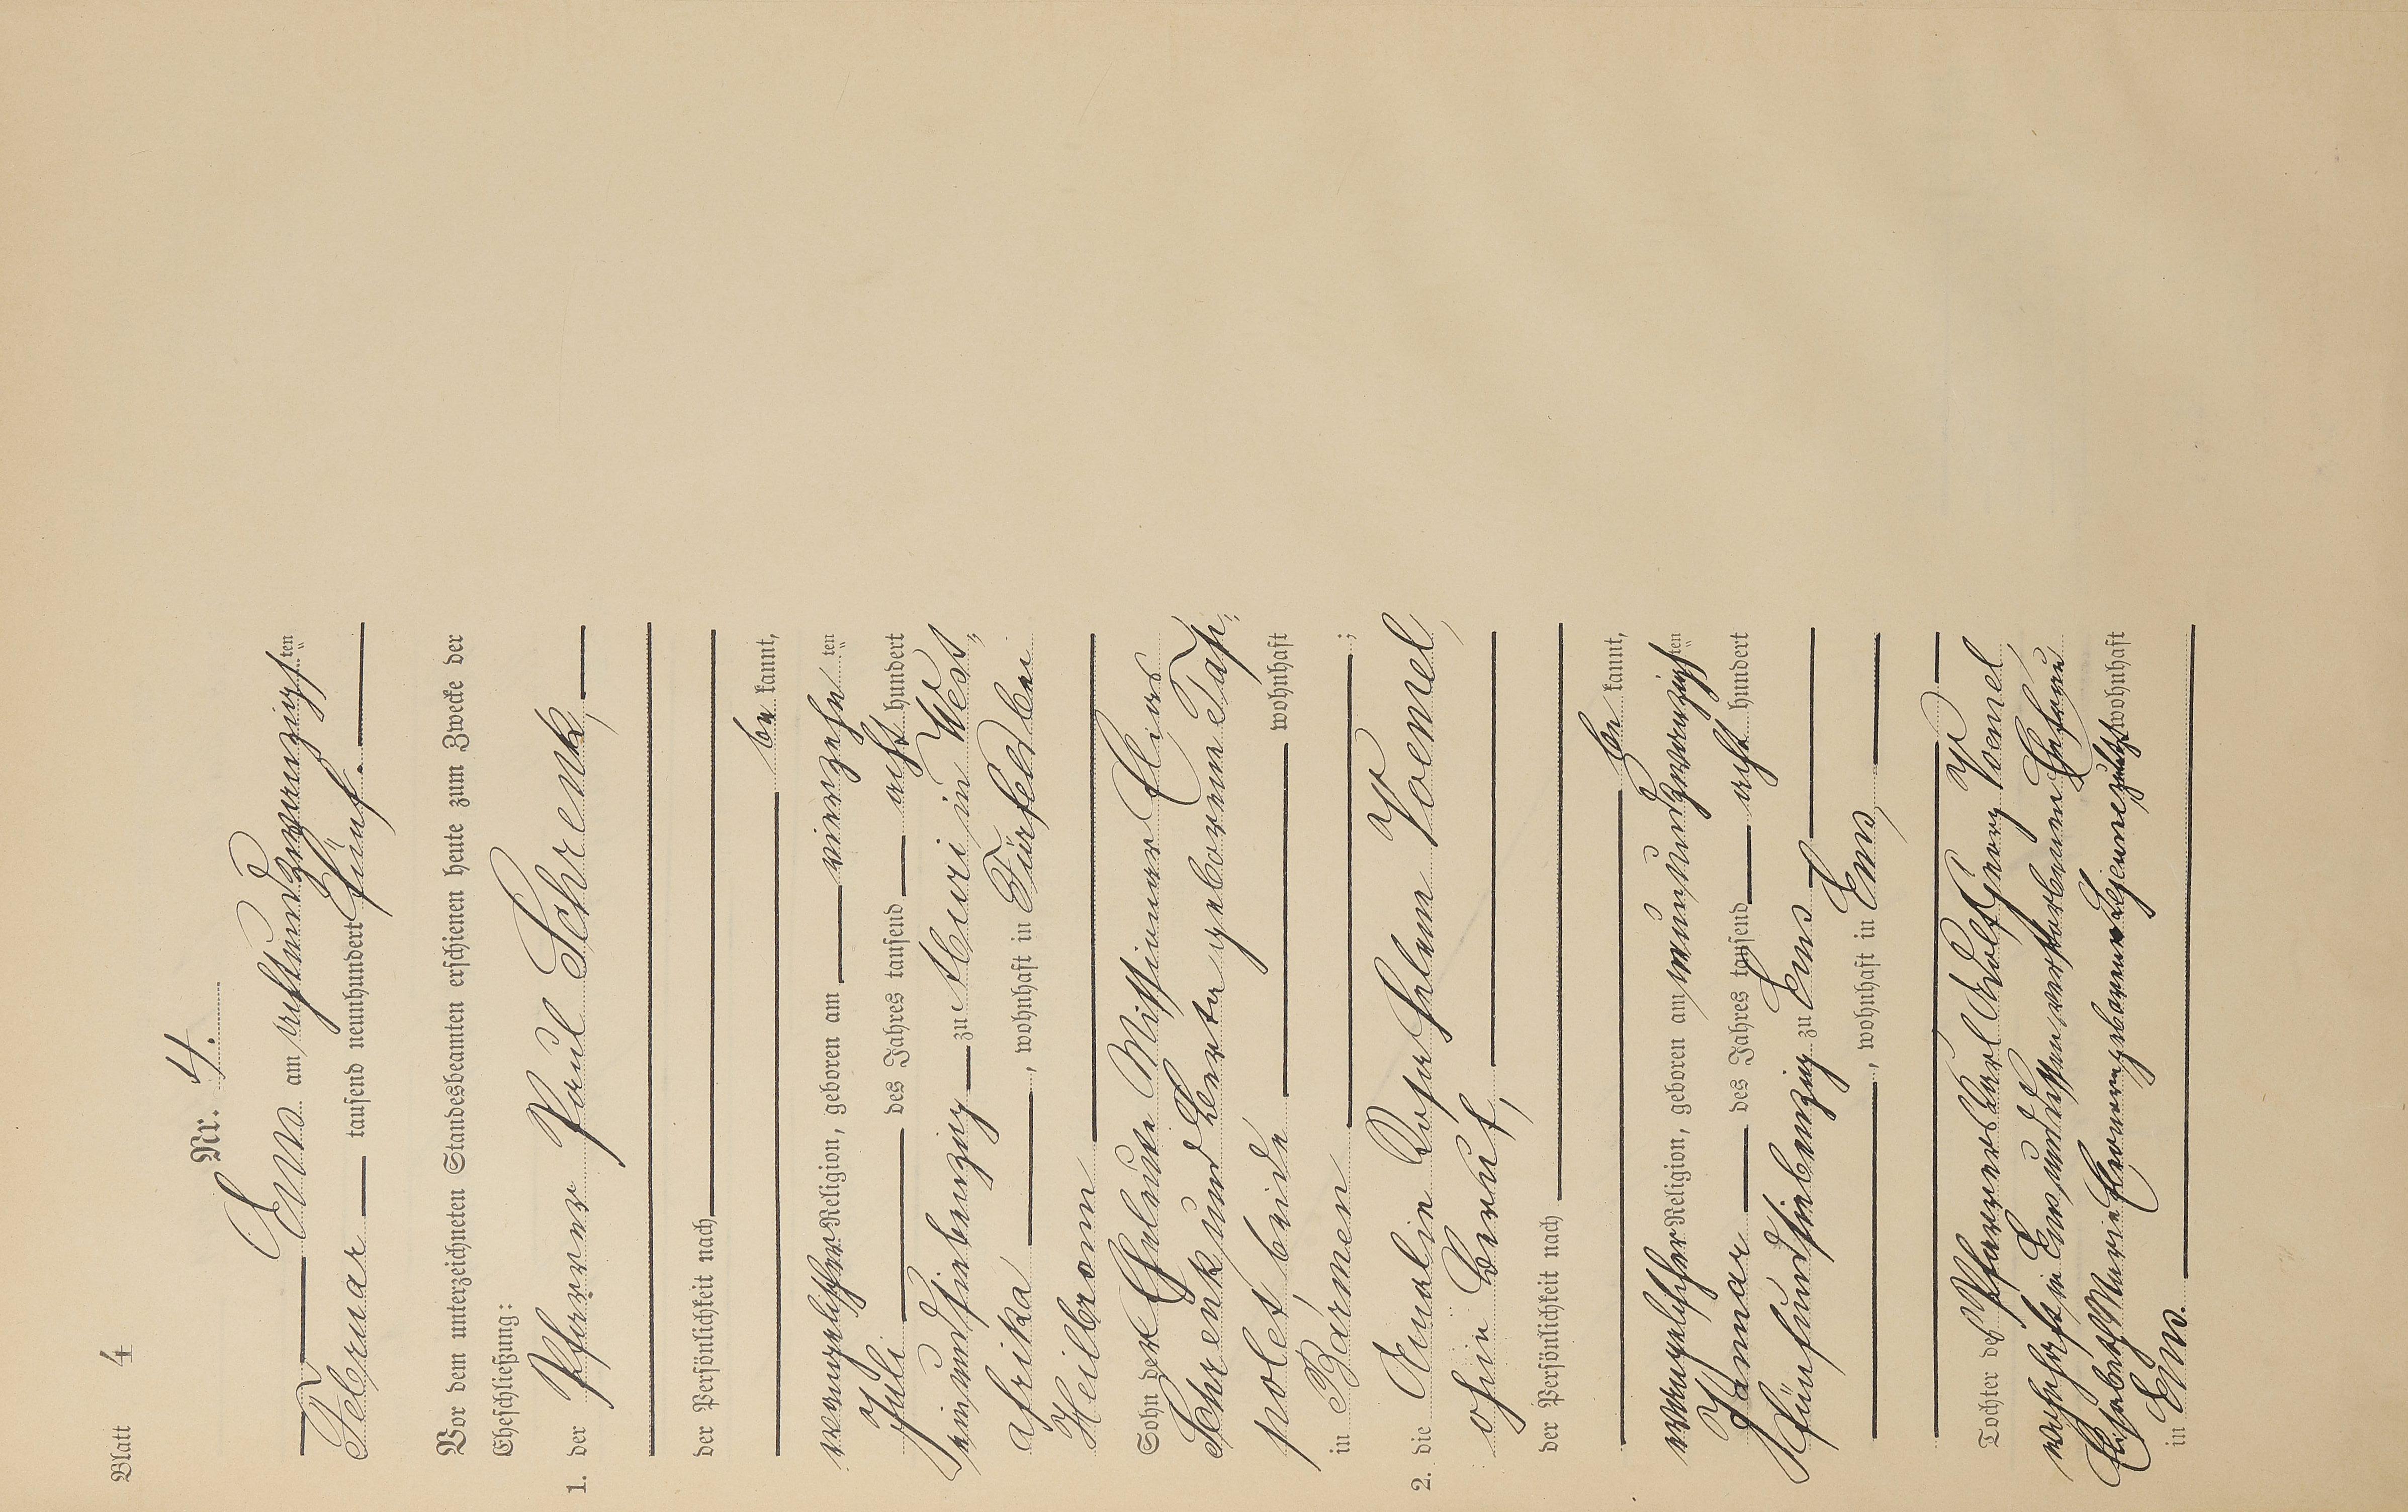 Blatt 4
Nr. 4.
Ems am achtundzwanzigsten
Februar tausend neunhundert fünf.
Vor dem unterzeichneten Standesbeamten erschienen heute zum Zwecke der
Eheschließung:
1. der Pfarrer Paul Schrenk,
der Persönlichkeit nach
be kannt,
evangelischer Religion, geboren am vierzehn ten
Juli des Jahres tausend acht hundert
einundsiebenzig zu Aburi in West-
afrika, wohnhaft in Fürfeld bei
Heilbronn
Sohn der Eheleute Missionar Elias
Schrenk und Berta geborene Tap-
polet, beide wohnhaft
in Barmen;
2. die Amalie Rosa Helene Voemel,
ohne Beruf,
der Persönlichkeit nach
be kannt,
evangelischer Religion, geboren am neunundzwanzigsten
Januar des Jahres tausend acht hundert
fünfundsiebenzig zu Ems
, wohnhaft in Ems,
Tochter des Pfarrers Karl Adolf Georg Voemel,
wohnhaft in Ems, und dessen verstorbenen Ehefrau
Elisabeth Marie geborenen zuletzt wohnhaft
in Ems.